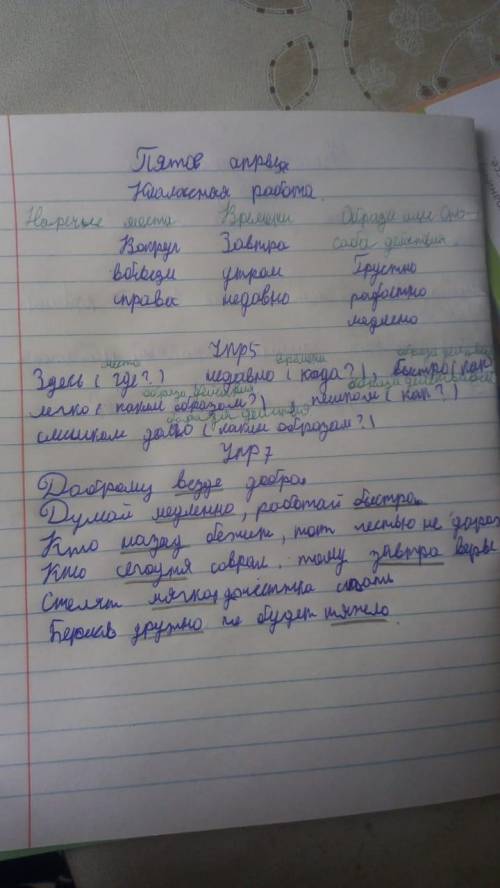 Пятое апреля
Классная работа.
Наречие места Времени Образа или спо-
Вокруг Завтра соба действия.
вблизи утром Грустно
справа недавно радостно
медлено
Упр5
место времени образа действия
Здесь (где?) недавно (кода?), быстро (как
образа действия образа действия
легко (каким образом?), пешком (как?)
образа действия
слишком долго (каким образом?)
Упр7
Доброму везде добро.
Думай медленно, работай быстро.
Кто назад бежит, тот честью не дорож
Кто сегодня соврал, тому завтра
Стелят мягко, да спать
Берись дружно не будет тяжело.